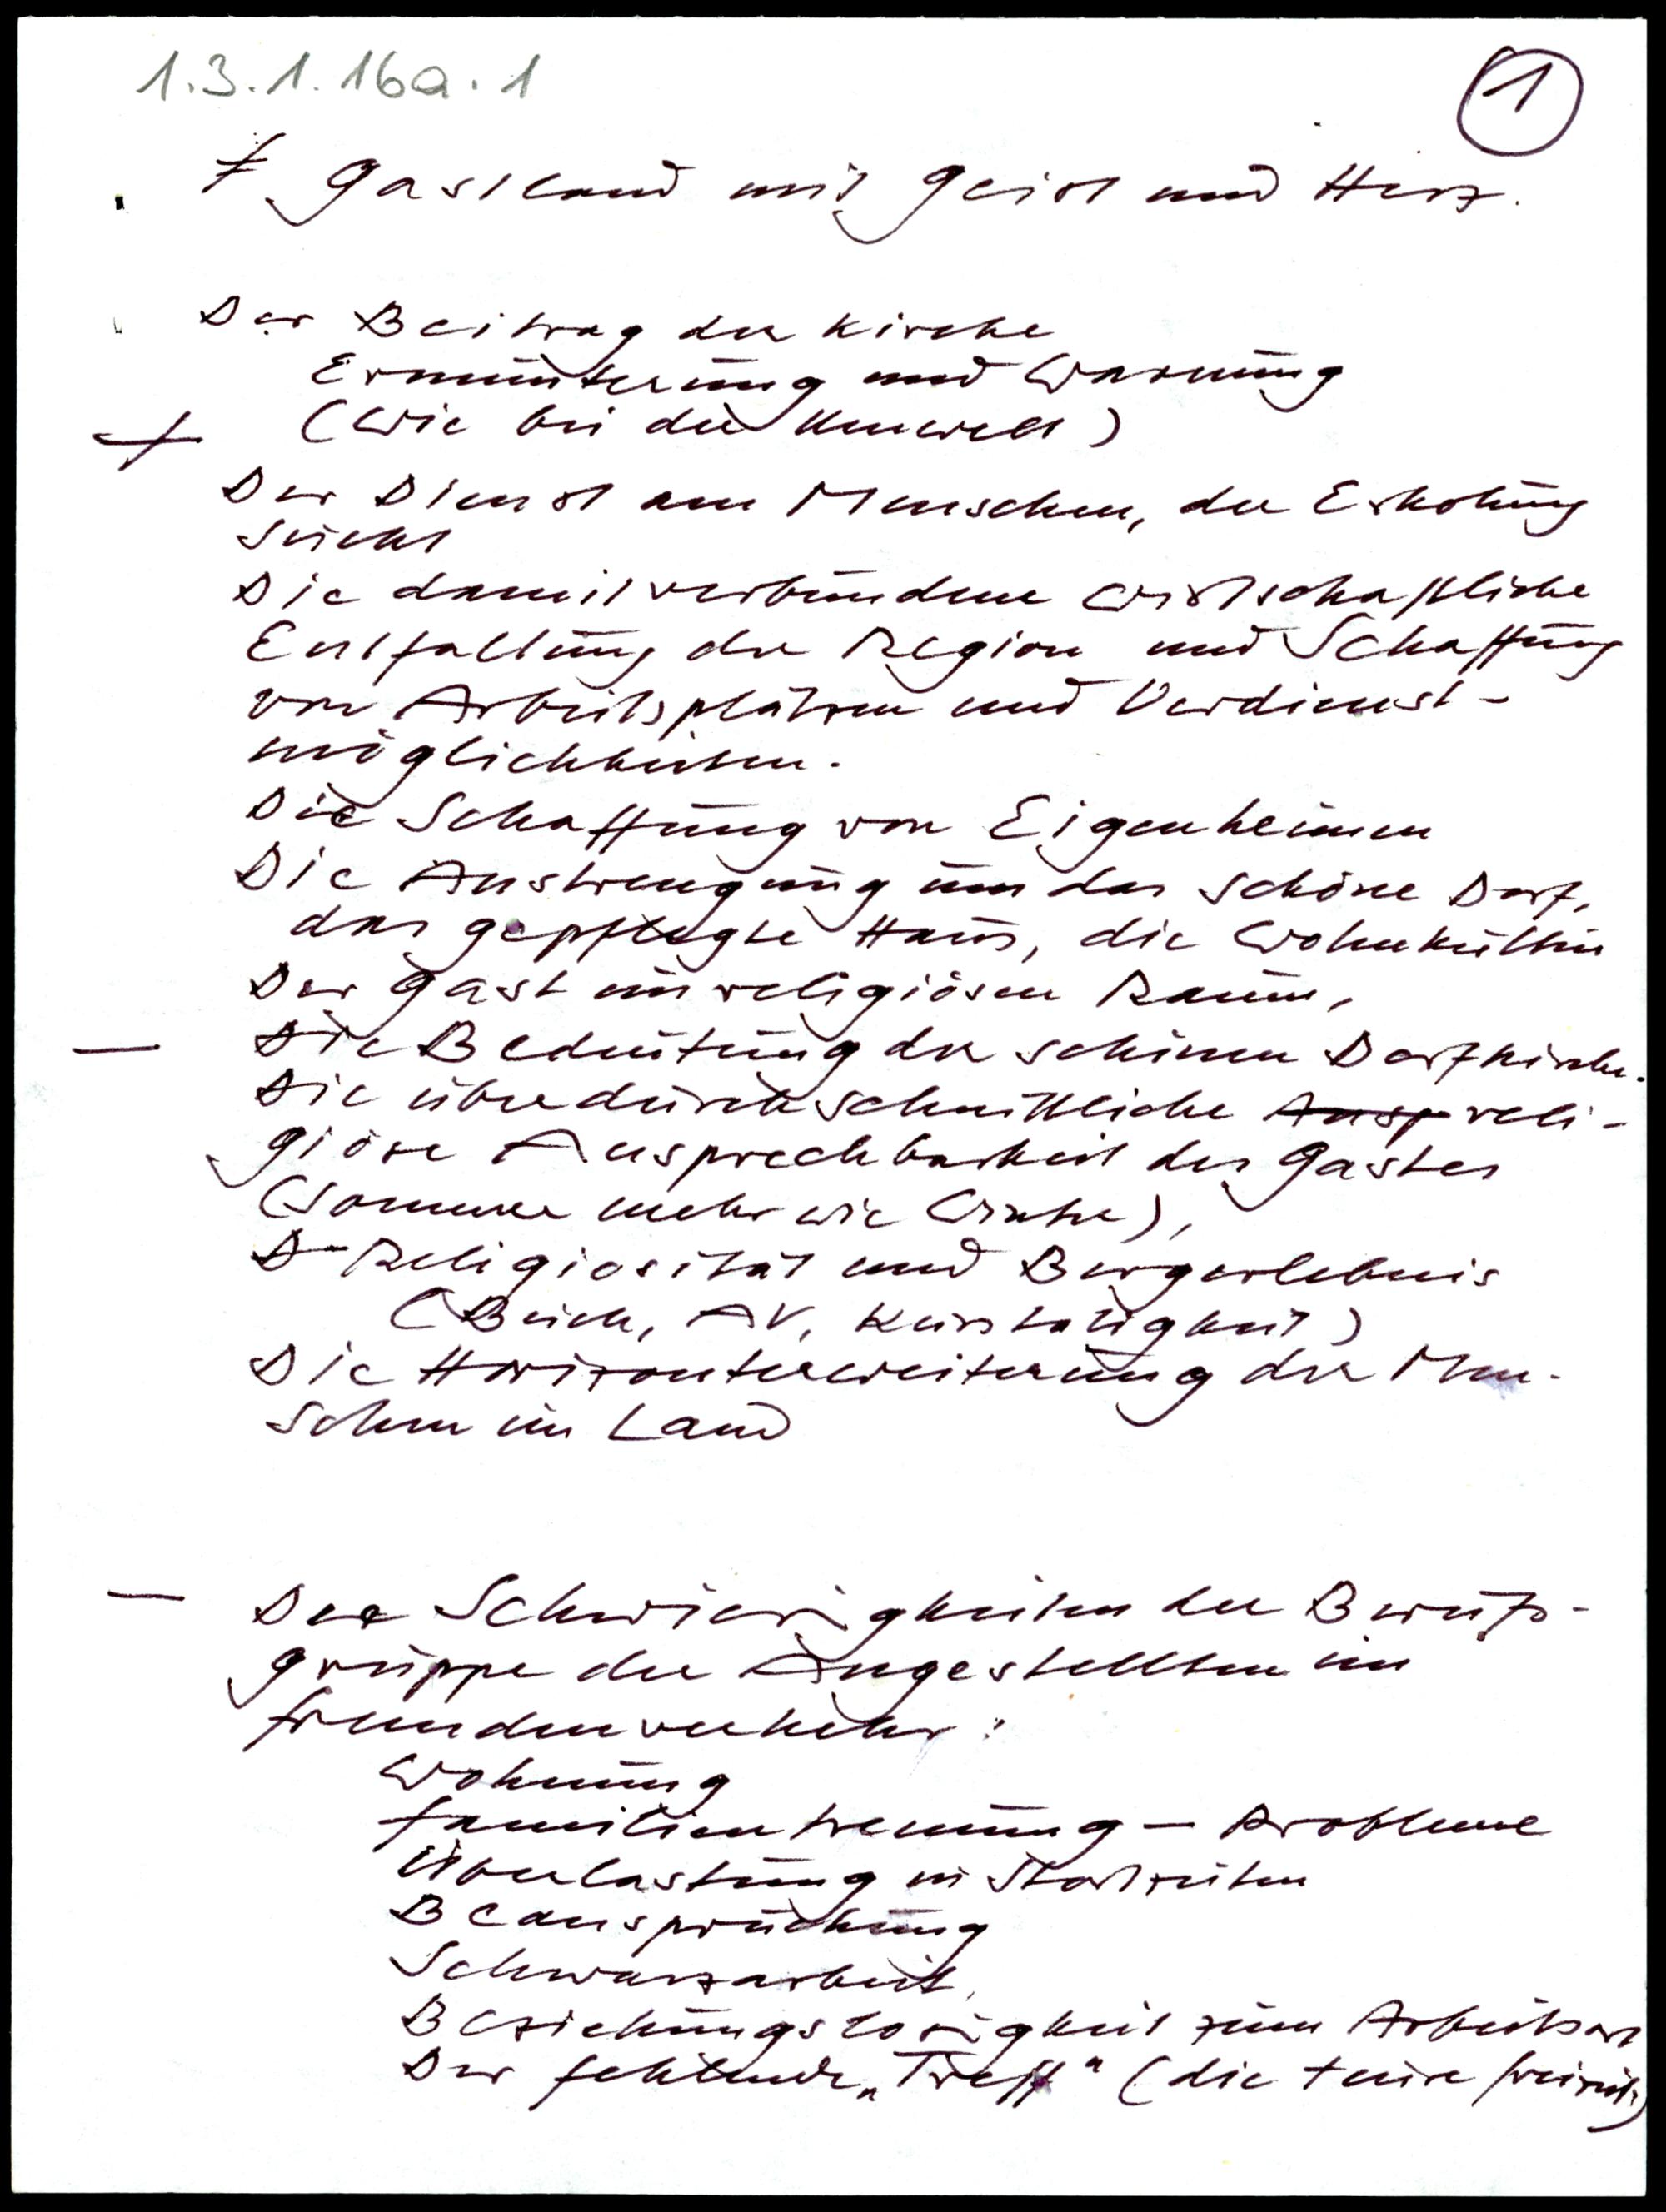 1.3.1.16a.1
1
Gastland mit Geist und Herz.
Der Beitrag der Kirche
Ermunterung und Warnung
(Wie bei der Umwelt)
Der Dienst am Menschen, der Erholung
sucht
Die damit verbundene wirtschaftliche
Entfaltung der Region und Schaffung
von Arbeitsplätzen und Verdienst-
möglichkeiten.
Die Schaffung von Eigenheimen
Die Anstrengung um das schöne Dorf,
das gepflegte Haus, die Wohnkultur
Der Gast im religiösen Raum,
Die Bedeutung der schönen Dorfkirche.
Die überdurchschnittliche Ansp reli-
giöse Ansprechbarkeit des Gastes
(Sommer mehr wie Winter),
D Religiosität und Bergerlebnis
(Buch, AV, Kurstätigkeit)
Die Horizonterweiterung der Men-
schen im Land
Die Schwierigkeiten der Berufs-
gruppe der Angestellten im
Fremdenverkehr:
Wohnung
Familientrennung - Probleme
Überlastung in Stoßzeiten
Beanspruchung
Schwarzarbeit,
Beziehungslosigkeit zum Arbeitsort
Der fehlende „Treff" (die teure Freizeit)